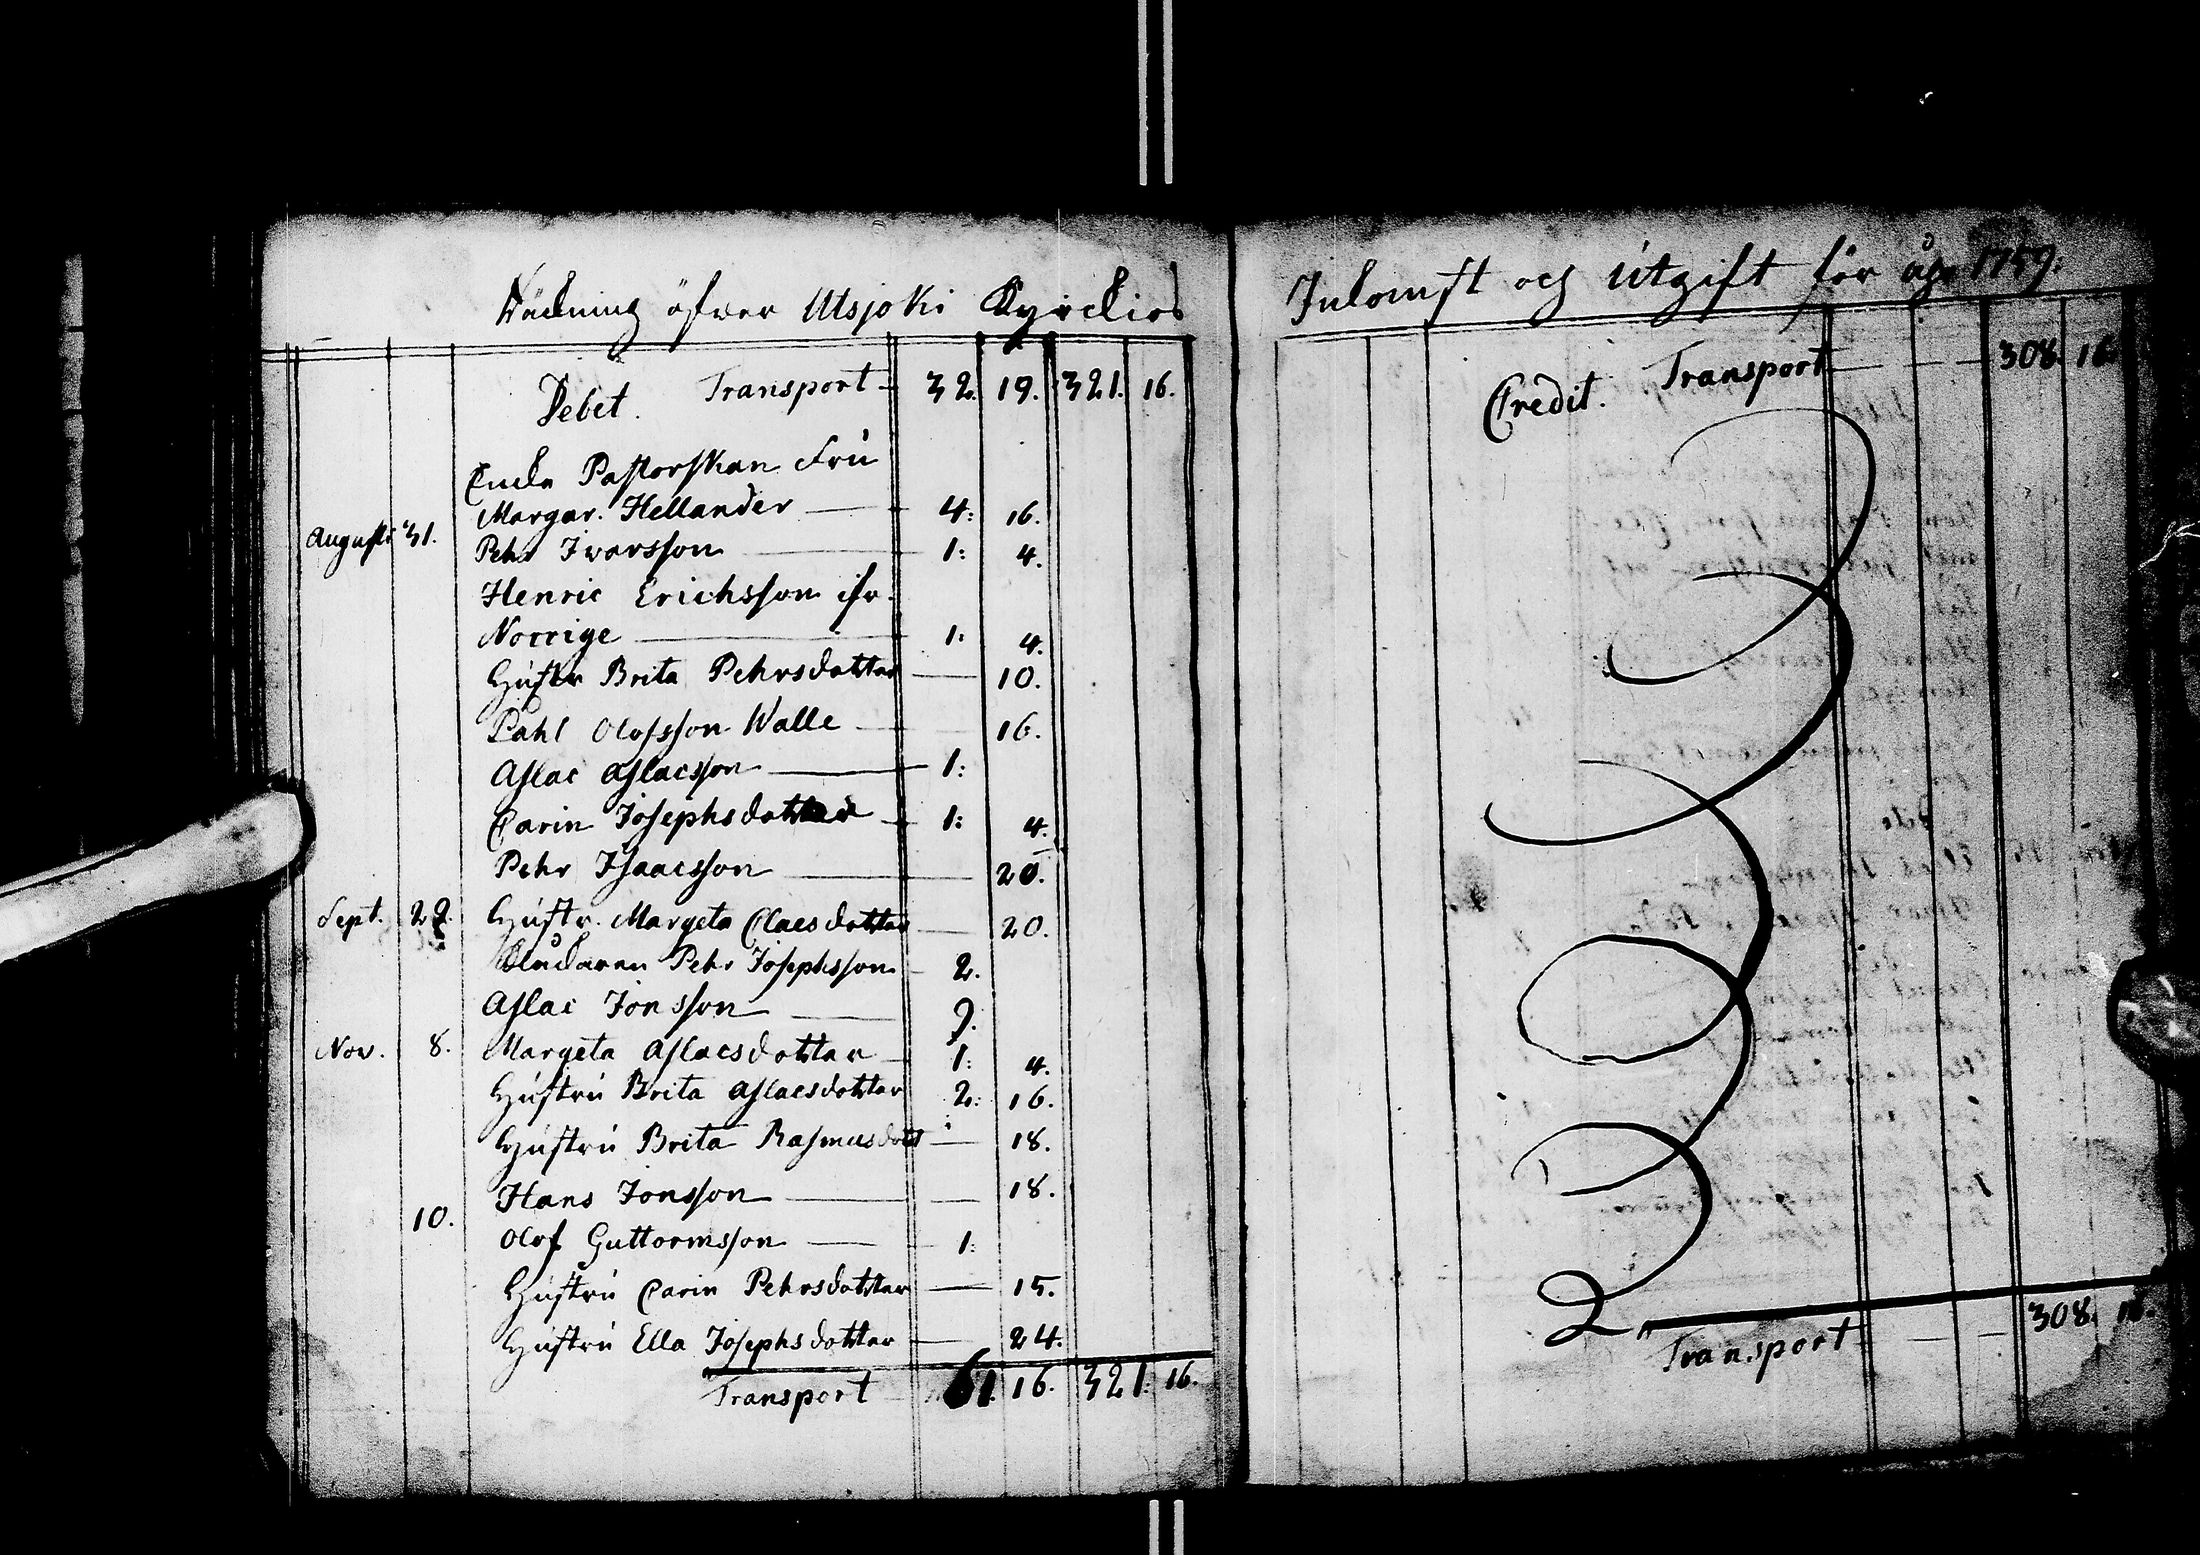 Räckning öfver Utsjoki Kyrckios
Debet. Transport 32. 19. 321. 16.
Pastorskan Fru
Margar. Hellander 4: 16.
Augusti 31. Pehr Ivarsson 1: 4.
Henric Erichsson ifr.
Norrige 1: 4.
Hustr Brita Pehrsdotter 10.
Påhl Olofsson Walle 16.
Aslac Aslacsson 1:
Carin Josephsdotter 1: 4.
Pehr Isaacsson 20.
Sept. 22. Hustr. Margeta Claesdotter 20.
Pehr Josephsson 2.
Aslac Jonsson 9.
Nov. 8. Margeta Aslacsdotter 1: 4.
Hustru Brita Aslacsdotter 2: 16.
Hustru Brita Rasmusdott 18.
Hans Jonsson 18.
10.
Olof Guttormsson 1:
Hustru Carin Pehrsdotter 15.
Hustru Ella Josephsdotter 24.
Transport 61. 16. 321: 16.
Inkomst och Utgift för åhr 1759.
Credit. Transport 308. 16.
Transport 308. 16.